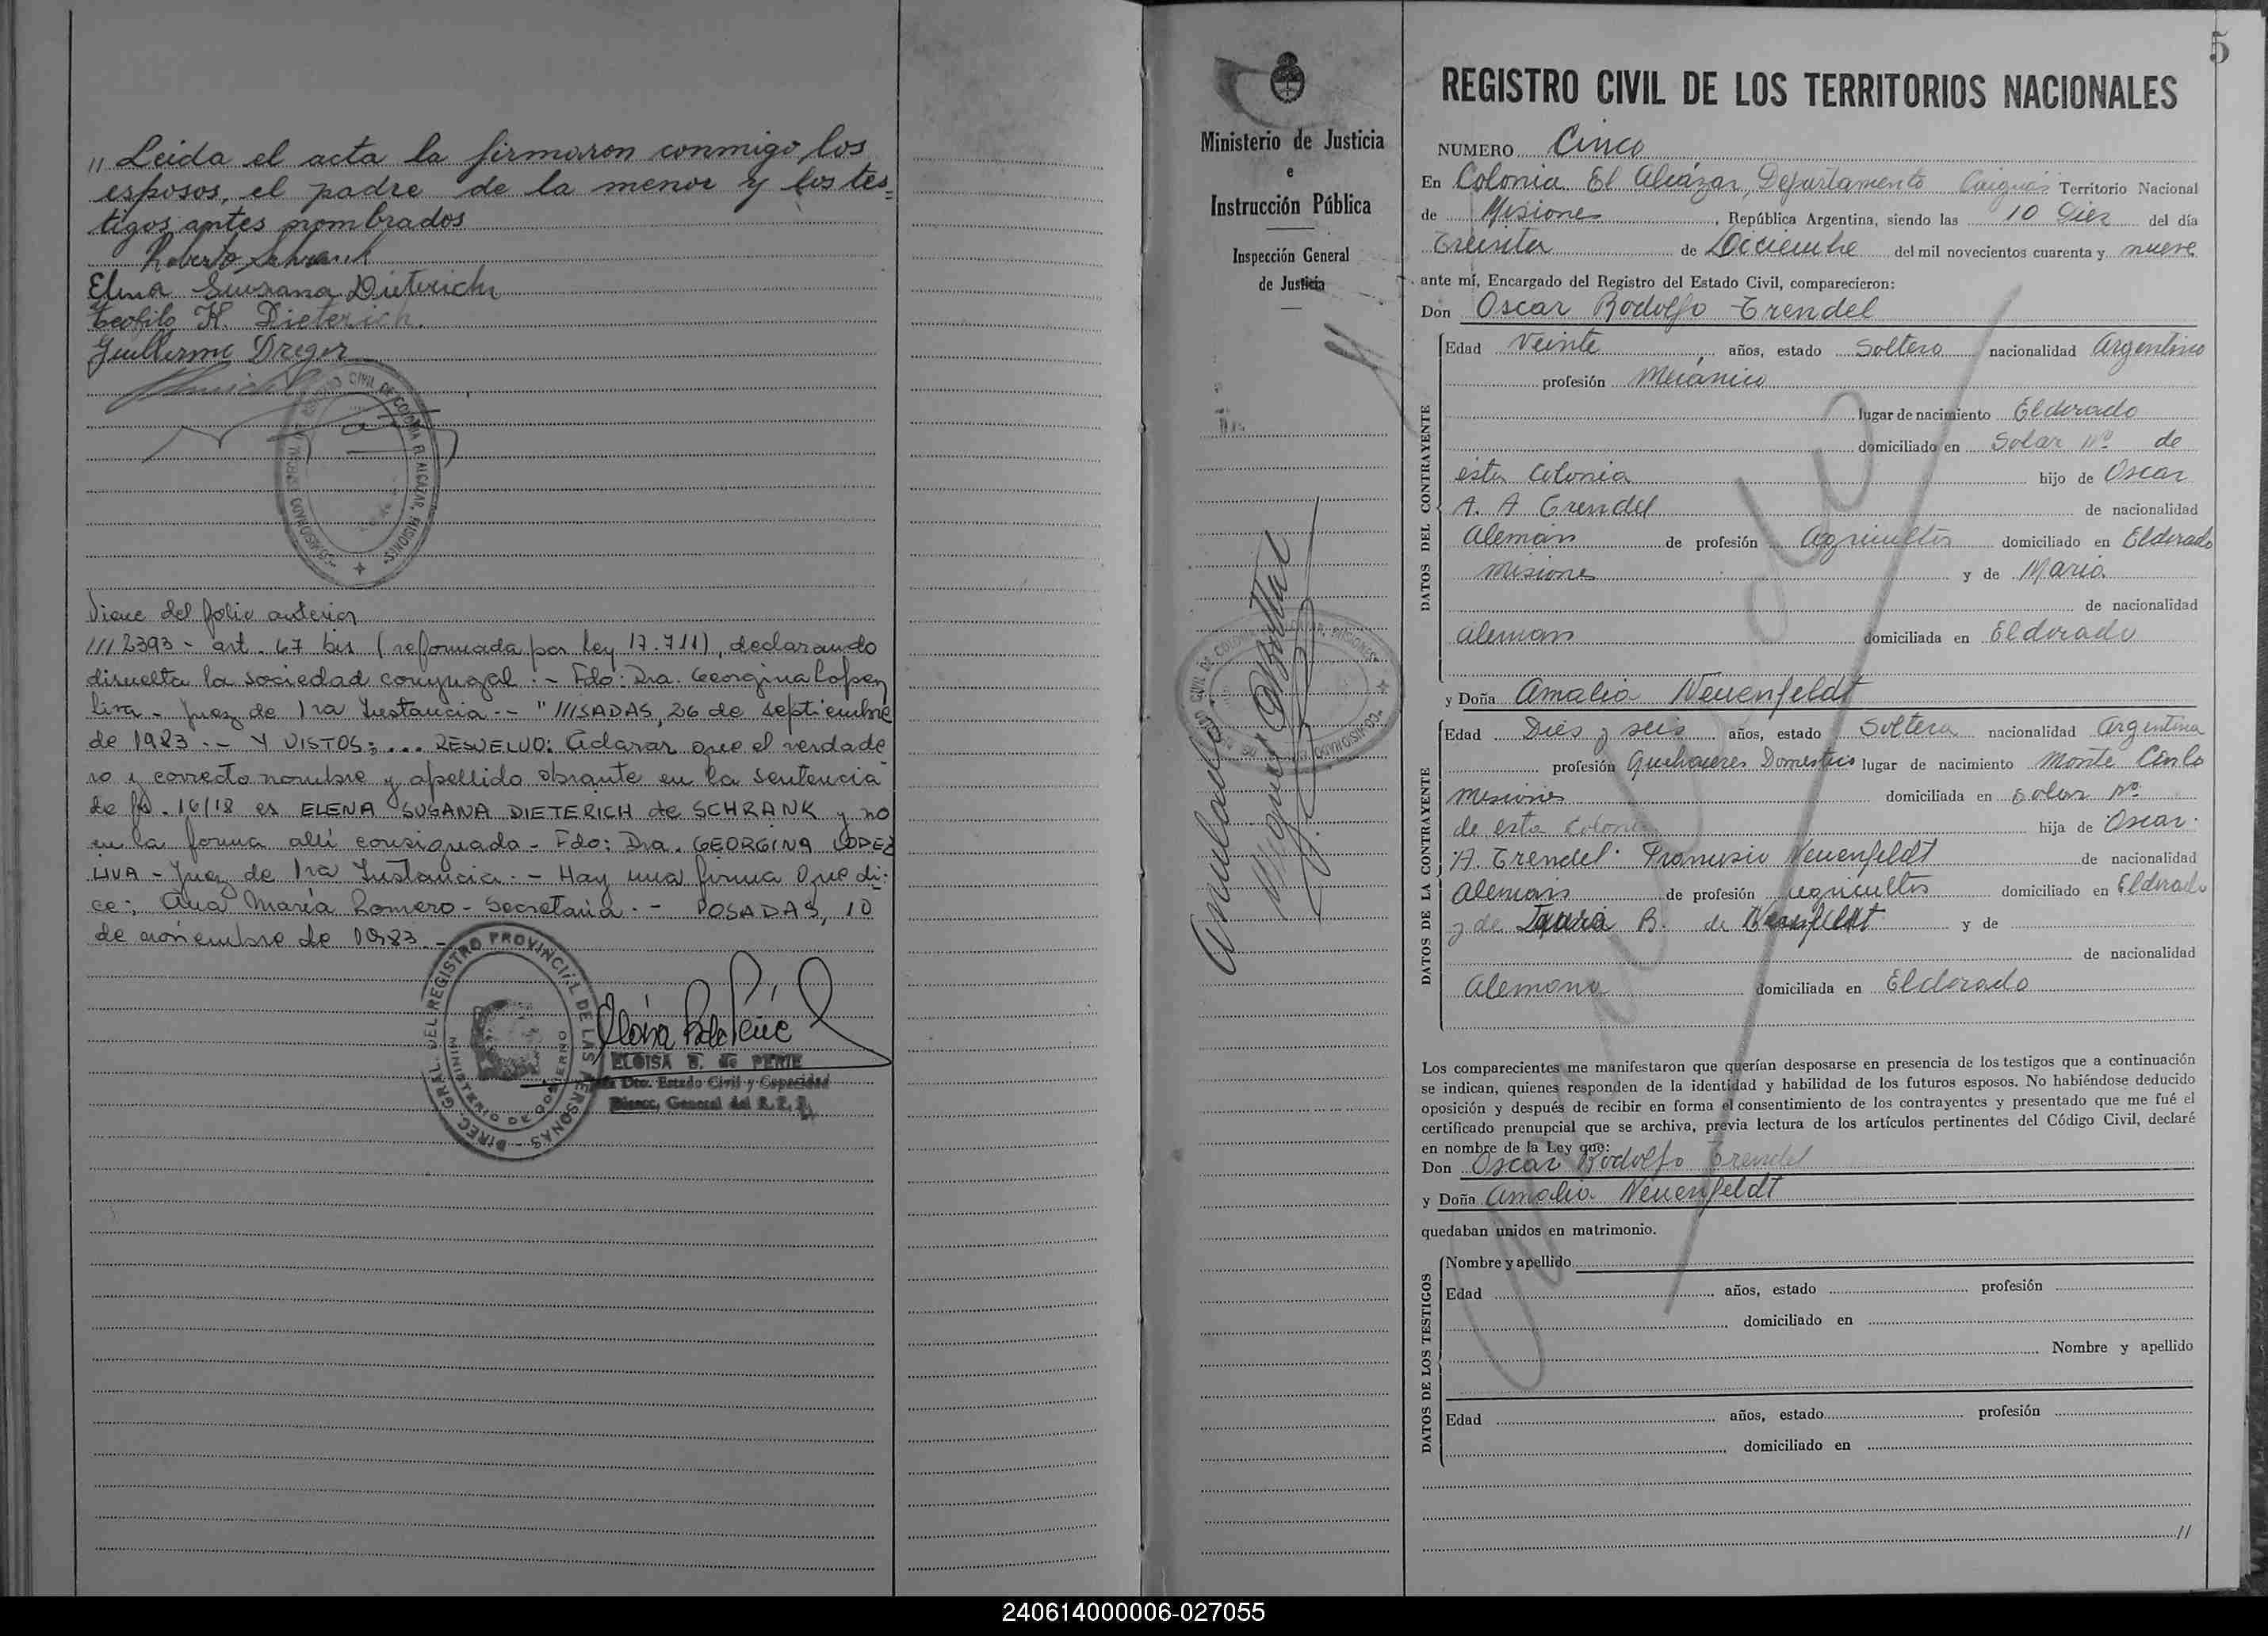 " Leida el acta la firmaron conmigo los
esposos, el padre de la menor y los tes=
tigos antes nombrados
Roberto Schrank
Elena Susana Dieterich
Teofilo H. Dieterich.
Guillermo Dreger
Viene del folio anterior
///2393 - art. 67 bis (reformada por ley 17.711), declarando
disuelta la sociedad conyugal.- Fdo: Dra. Georgina Lopez
Liva - Juez de 1ra Instancia.- "///SADAS, 26 de septiembre
de 1983.- Y VISTOS: ... RESUELVO: Aclarar que el verdade
ro y correcto nombre y apellido obrante en la sentencia
de fs. 16/18 es ELENA SUSANA DIETERICH de SCHRANK y no
en la forma allí consignada - Fdo: Dra. GEORGINA LOPEZ
LIVA - Juez de 1ra Instancia.- Hay una firma que di-
ce: Ana María Romero - Secretaria.- POSADAS, 10
de noviembre de 1983.-
DIREC. GRAL. DEL REGISTRO PROVINCIAL DE LAS PERSONAS
MINISTERIO DE GOBIERNO
ELOISA B. de PERIE
Dto. Estado Civil y Capacidad
Direcc. General del R. P. P.
Ministerio de Justicia
e
Instrucción Pública
Inspección General
de Justicia
Anulado
5
REGISTRO CIVIL DE LOS TERRITORIOS NACIONALES
NUMERO Cinco
En Colonia El Alcázar, Departamento Caiguás Territorio Nacional
de Misiones, República Argentina, siendo las 10 Diez del día
Treinta de Diciembre del mil novecientos cuarenta y nueve
ante mí, Encargado del Registro del Estado Civil, comparecieron:
Don Oscar Rodolfo Trendel
DATOS DEL CONTRAYENTE
Edad Veinte años, estado Soltero nacionalidad Argentino
profesión Mecánico
lugar de nacimiento Eldorado
domiciliado en Solar Nº de
esta Colonia hijo de Oscar
A. A Trendel de nacionalidad
Alemán de profesión Agricultor domiciliado en Eldorado
Misiones y de Maria
de nacionalidad
Aleman domiciliada en Eldorado
y Doña Amalia Neuenfeldt
DATOS DE LA CONTRAYENTE
Edad Dies y seis años, estado Soltera nacionalidad Argentina
profesión Quehaceres Domesticos lugar de nacimiento Monte Carlo
Misiones domiciliada en Solar Nº
de esta Colonia hija de Oscar
A. Trendel Neuenfeldt de nacionalidad
Aleman de profesión agricultor domiciliado en Eldorado
y de B. de Neuenfeldt y de
de nacionalidad
Alemana domiciliada en Eldorado
Los comparecientes me manifestaron que querían desposarse en presencia de los testigos que a continuación
se indican, quienes responden de la identidad y habilidad de los futuros esposos. No habiéndose deducido
oposición y después de recibir en forma el consentimiento de los contrayentes y presentado que me fué el
certificado prenupcial que se archiva, previa lectura de los artículos pertinentes del Código Civil, declaré
en nombre de la Ley que:
Don Oscar Rodolfo Trendel
y Doña Amalia Neuenfeldt
quedaban unidos en matrimonio.
DATOS DE LOS TESTIGOS
Nombre y apellido
Edad años, estado profesión
domiciliado en
Nombre y apellido
Edad años, estado profesión
domiciliado en
//
240614000006-027055